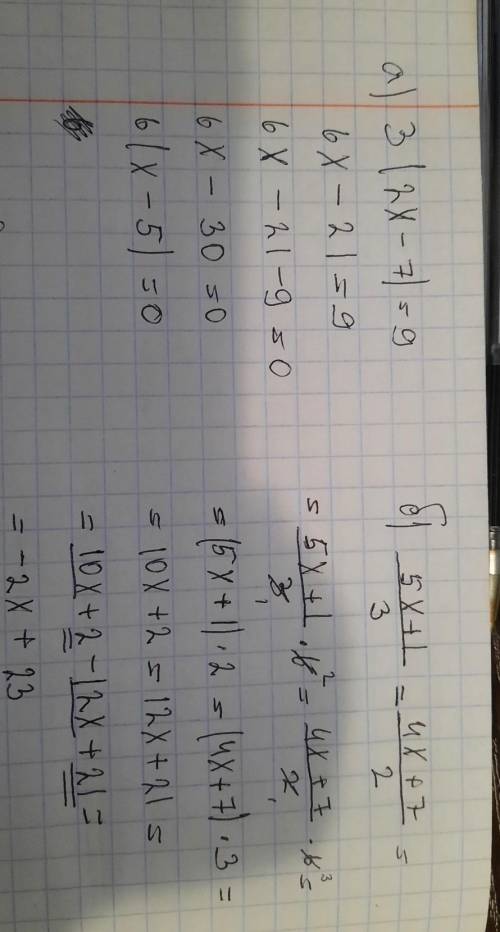 а) 3(2x - 7) = 9
6x - 21 = 9
6x - 21 - 9 = 0
6x - 30 = 0
6(x - 5) = 0
б) (5x+1)/3 = (4x+7)/2 =
= (5x+1)/3 · 6² = (4x+7)/2 · 6³ =
= (5x+1)·2 = (4x+7)·3 =
= 10x+2 = 12x+21 =
= 10x+2 - 12x+21 =
= -2x + 23